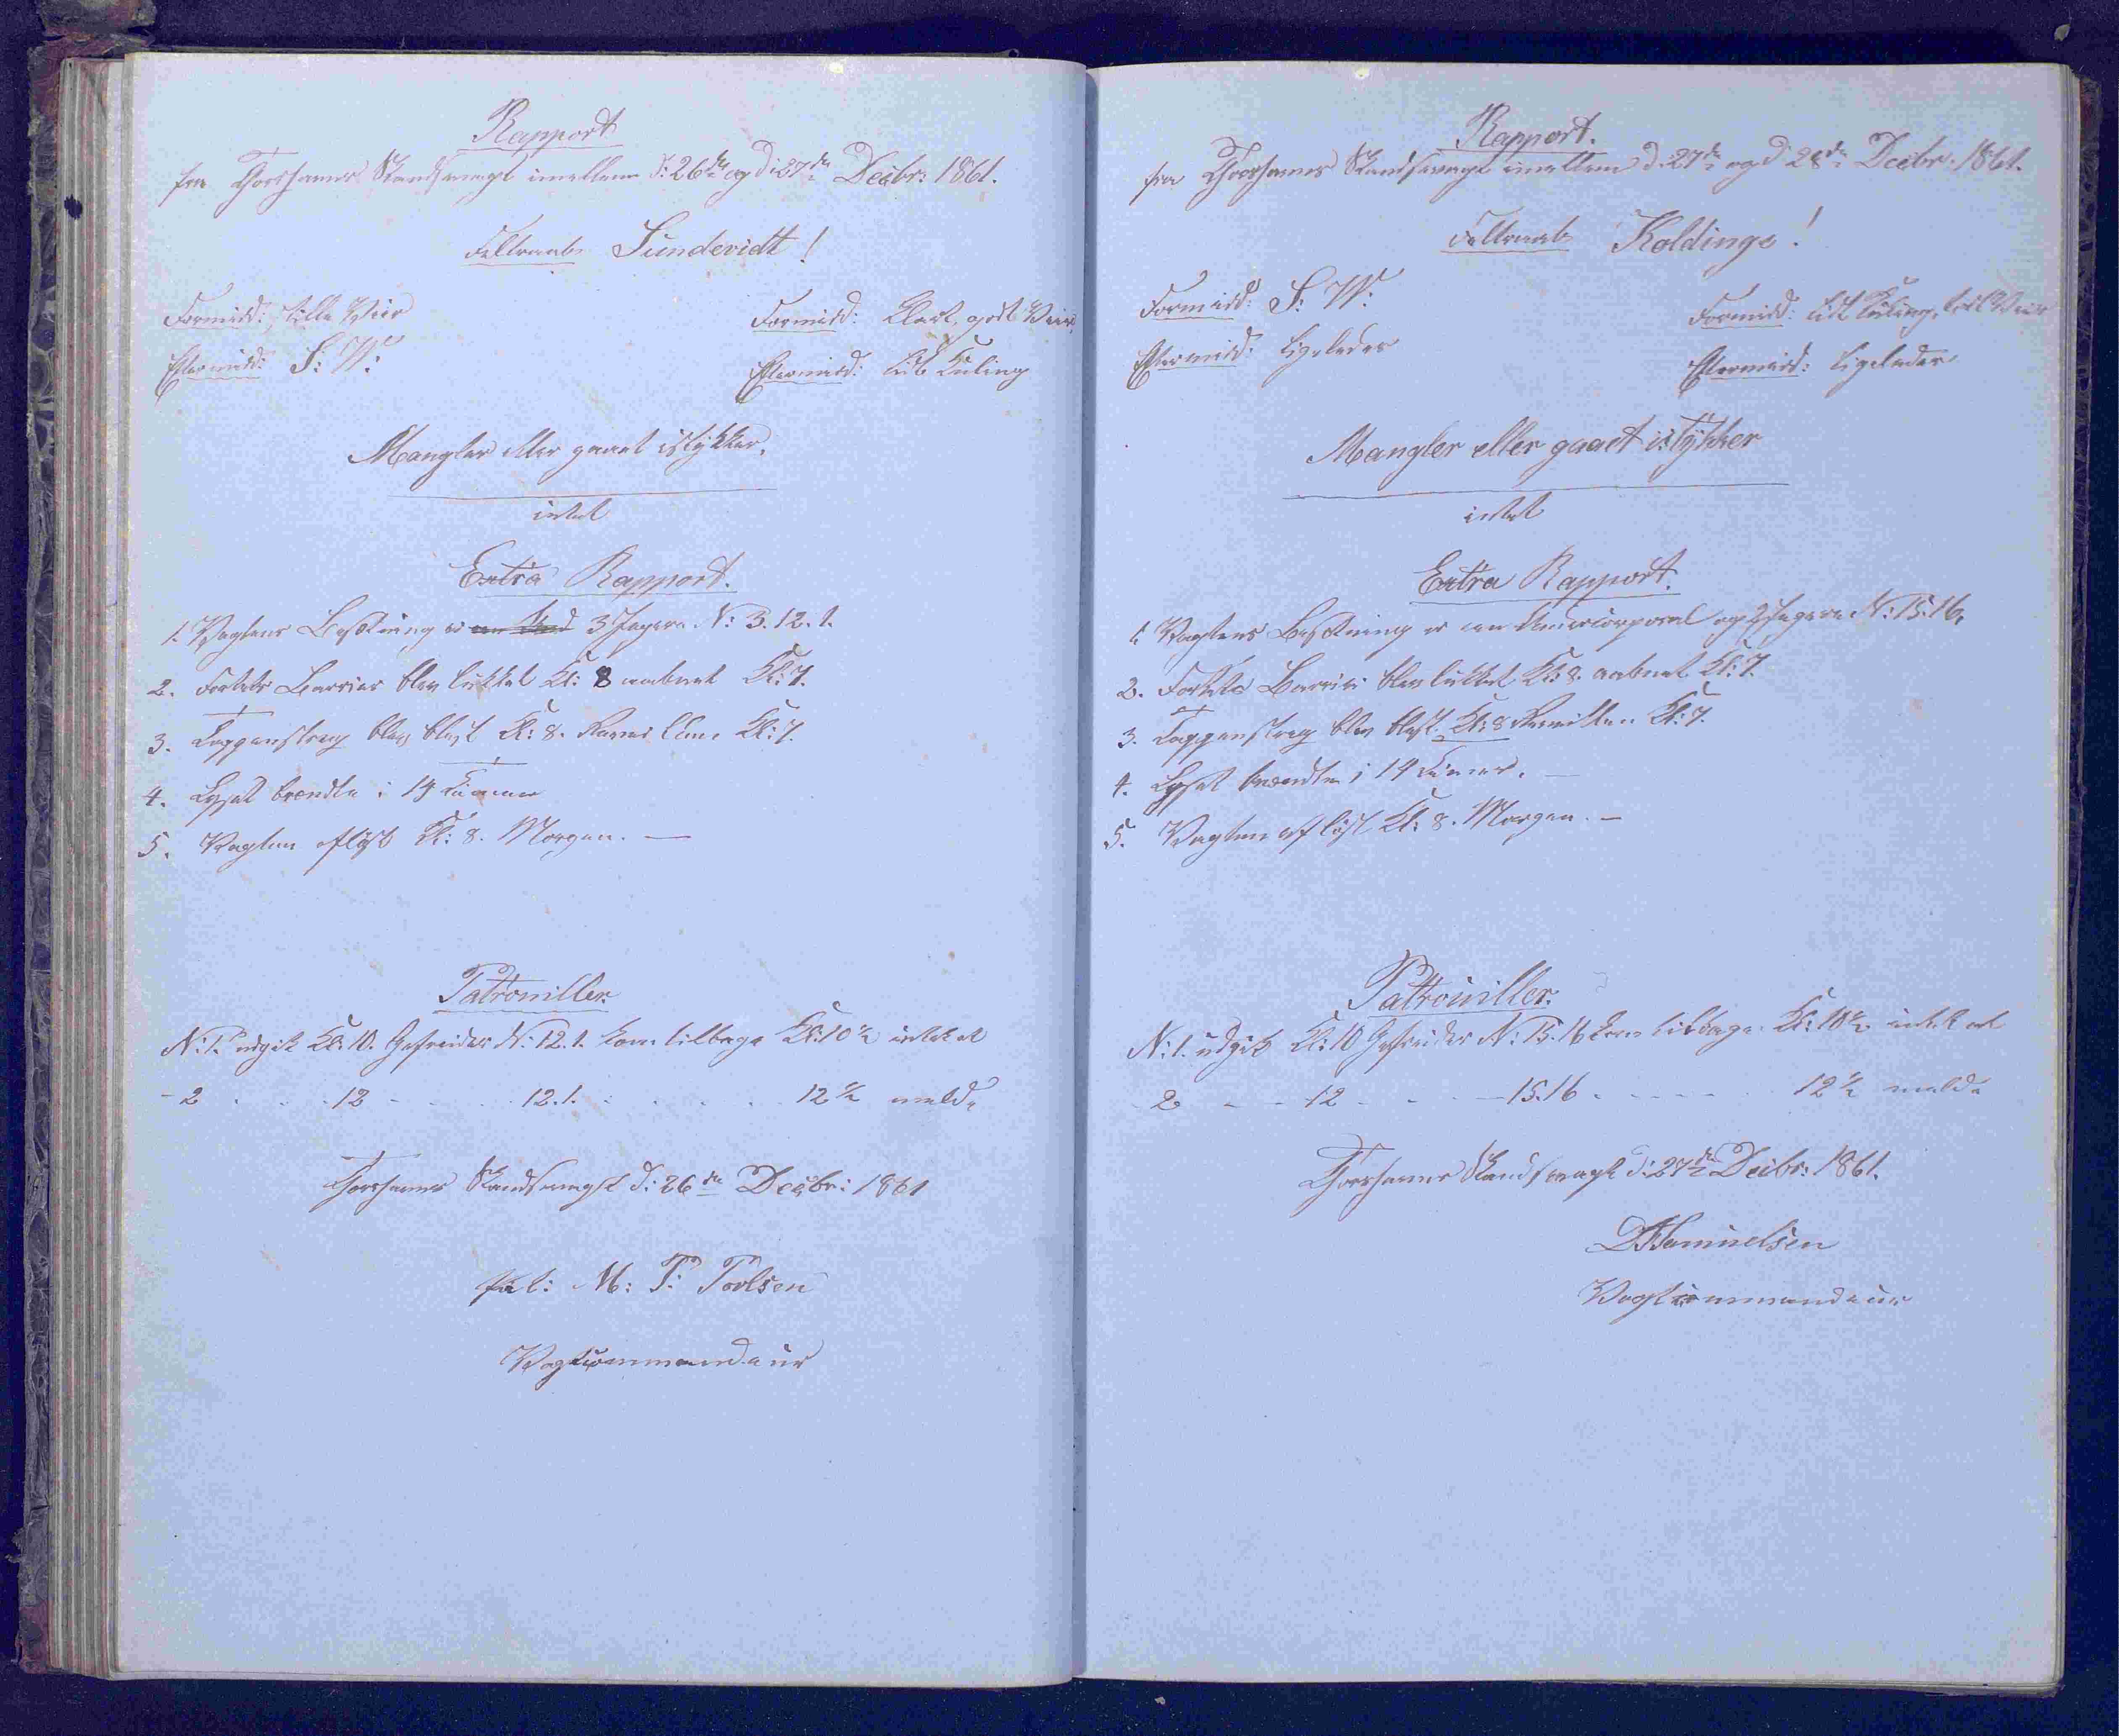 Rapport
fra Thorshavns Skandsevagt imellem d: 26de og d: 27de Decbr: 1861.
Feltraab Sundevidt!
Formidd: Stille Veir
Formidd: Klart, godt Veir
Eftermidd: S: W:
Eftermidd: Lidt Kuling
Mangler eller gaaet istykker.
intet
Extra Rapport.
1. Vagtens Besætning er 3 Jægere N: 3. 12. 1.
2. Fortets Barrier blev lukket Kl: 8 aabnet Kl: 7.
3. Tappenstreg blev blæst Kl: 8. Reveillen Kl: 7.
4. Lyset brændte i 14 Timer
5. Vagten afløst Kl: 8. Morgen. —
Patrouiller.
N: 1. udgik Kl: 10. Gefreider N: 12. 1. kom tilbage Kl: 10½ intet at
- 2 . . . 12 - . . . 12. 1. . . . . 12½ melde
Thorshavns Skandsevagt d: 26de Decbr: 1861
M: P: Poulsen
Vagtcommandeur
Rapport.
fra Thorshavns Skandsevagt imellem d: 27de og d: 28de Decbr. 1861.
Feltraab Koldinge!
Formidd: S: W:
Formidd: Lidt Kuling, Veir
Eftermidd: Ligeledes
Eftermidd: Ligeledes
Mangler eller gaaet istykker
intet
Extra Rapport.
1. Vagtens Besætning er en Undercorporal og 2 Jægere N: 15. 16.
2. Fortets Barrier blev lukket Kl: 8. aabnet Kl: 7.
3. Tappenstreg blev blæst Kl: 8 Reveillen Kl: 7.
4. Lyset brændte i 14 Timer. —
5. Vagten afløst Kl: 8. Morgen. —
Patrouiller.
N: 1. udgik Kl: 10 Gefreider N: 15. 16 kom tilbage Kl: 10½ intet at
- 2 - - 12 - . - 15. 16 . - - - - 12½ melde
Thorshavns Skandsevagt d: 27de Decbr: 1861.
Samuelsen
Vagtcommandeur